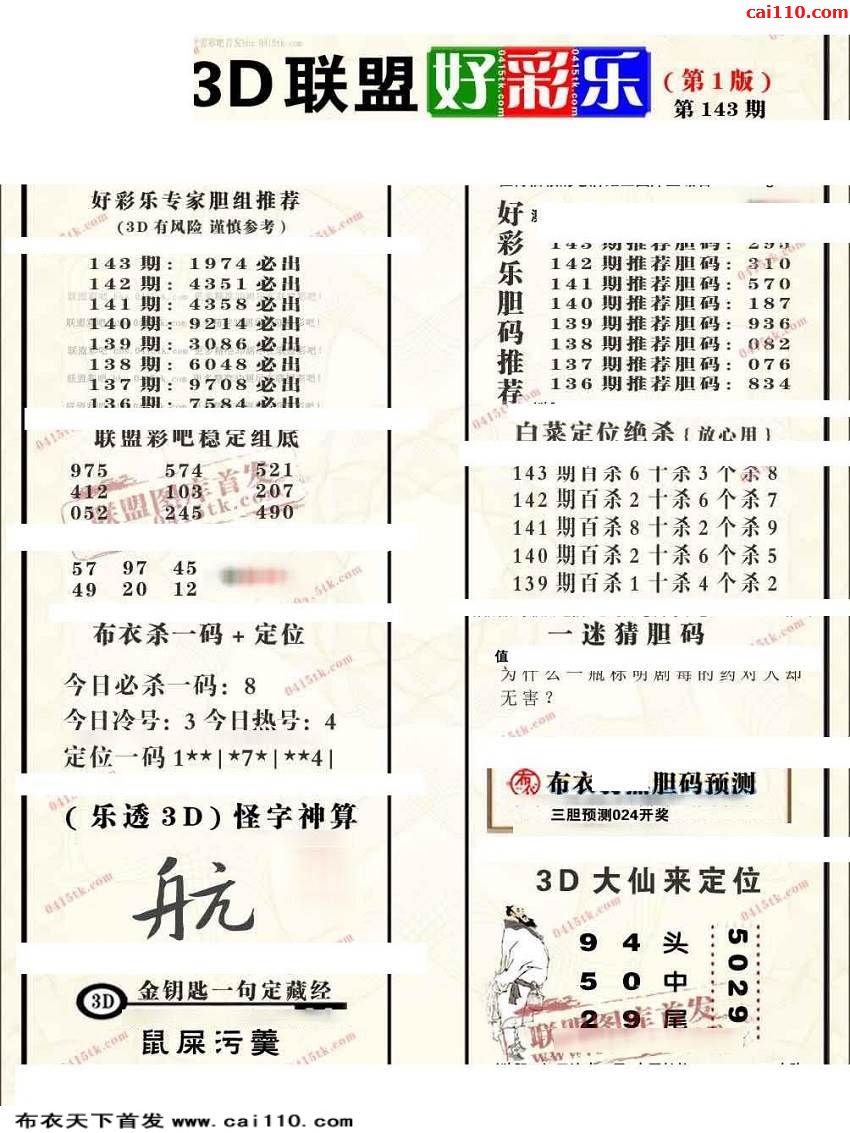 cai110.com
3D联盟好彩乐(第1版)
第143期
好彩乐专家胆组推荐
(3D有风险 谨慎参考)
143期：1974必出
142期：4351必出
141期：4358必出
140期：9214必出
139期：3086必出
138期：6048必出
137期：9708必出
136期：7584必出
联盟彩吧稳定组底
975 574 521
412 103 207
052 245 490
57 97 45
49 20 12
布衣杀一码+定位
今日必杀一码：8
今日冷号：3今日热号：4
定位一码1**|*7*|**4|
(乐透3D)怪字神算
航
3D 金钥匙一句定藏经
鼠屎污羹
好彩乐胆码推荐
143期推荐胆码：295
142期推荐胆码：310
141期推荐胆码：570
140期推荐胆码：187
139期推荐胆码：936
138期推荐胆码：082
137期推荐胆码：076
136期推荐胆码：834
白菜定位绝杀{放心用}
143期百杀6十杀3个杀8
142期百杀2十杀6个杀7
141期百杀8十杀2个杀9
140期百杀2十杀6个杀5
139期百杀1十杀4个杀2
一迷猜胆码
值
为什么一瓶标明剧毒的药对人却
无害？
布衣 胆码预测
三胆预测024开奖
3D大仙来定位
9 4 头
5 0 中
2 9 尾
5029
联盟图库首发
0415tk.com
布衣天下首发 www.cai110.com